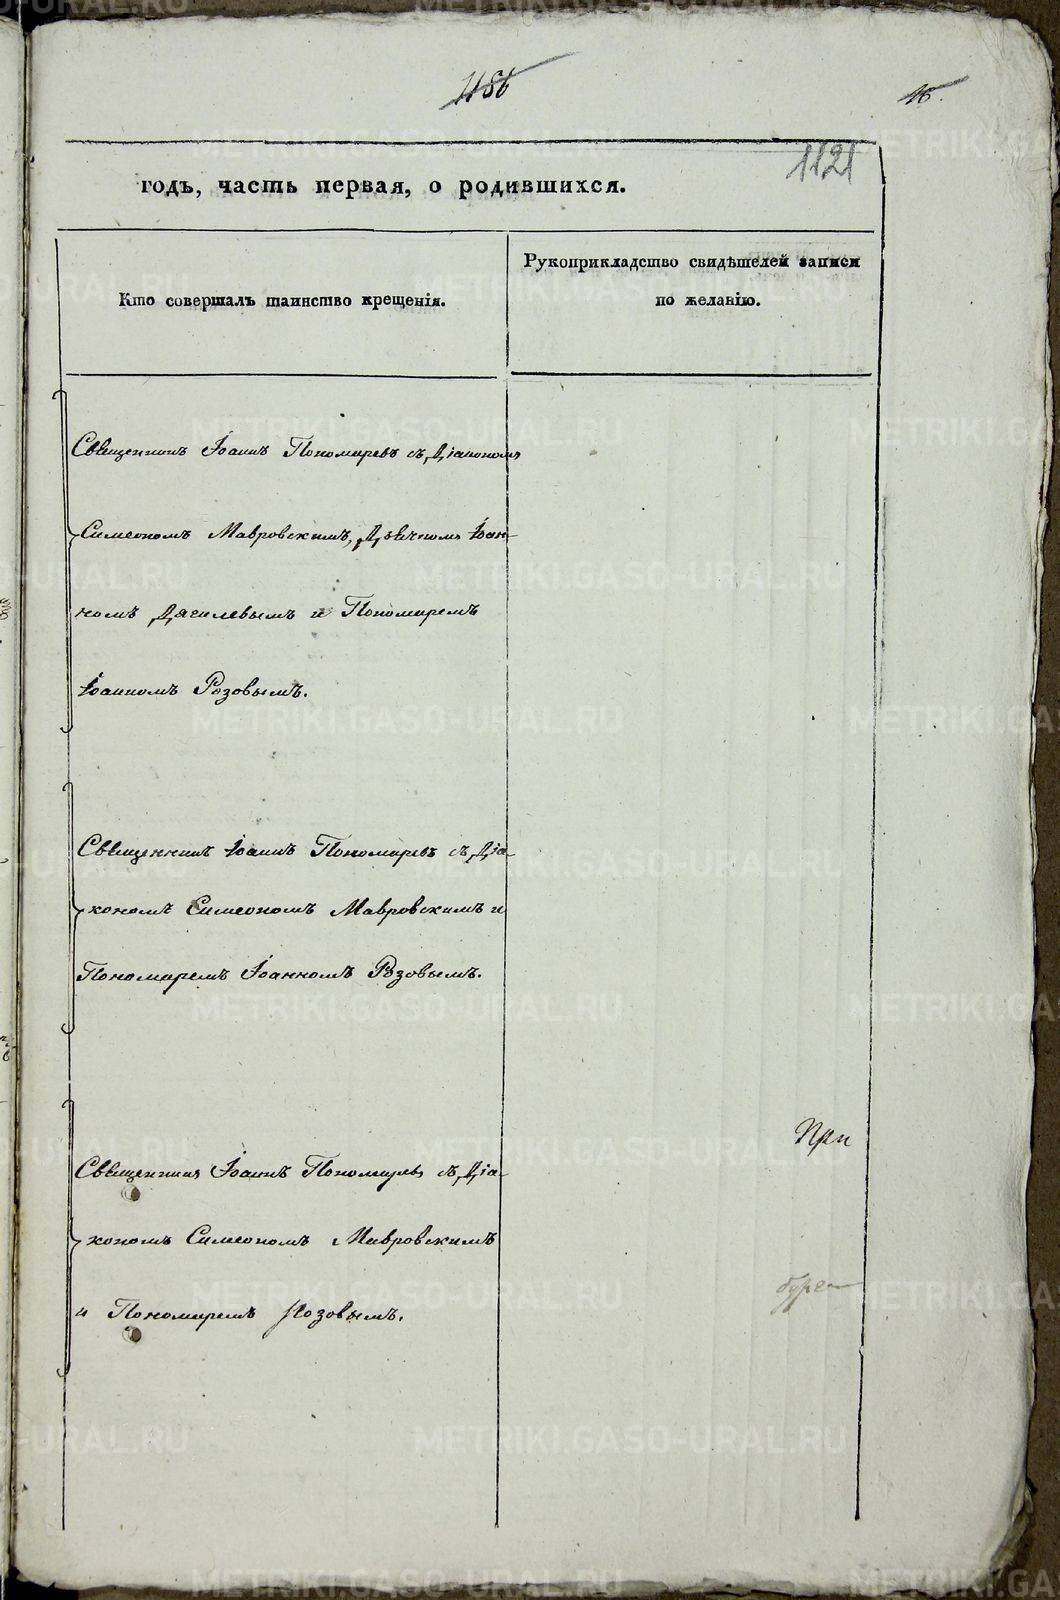 1186
16.
1121
годъ, часть первая, о родившихся.
Кто совершалъ таинство крещенія.
Рукоприкладство свидѣтелей записи
по желанію.
Священникъ Іоаннъ Пономаревъ съ Діакономъ
Симеономъ Мавровскимъ, Дьячкомъ Іоан-
номъ Дягилевымъ и Пономаремъ
Іоанномъ Розовымъ.
Священникъ Іоаннъ Пономаревъ съ Діа-
кономъ Симеономъ Мавровскимъ и
Пономаремъ Іоанномъ Розовымъ.
При
Священникъ Іоаннъ Пономаревъ съ Діа-
кономъ Симеономъ Мавровскимъ
и Пономаремъ Розовымъ.
METRIKI.GASO-URAL.RU